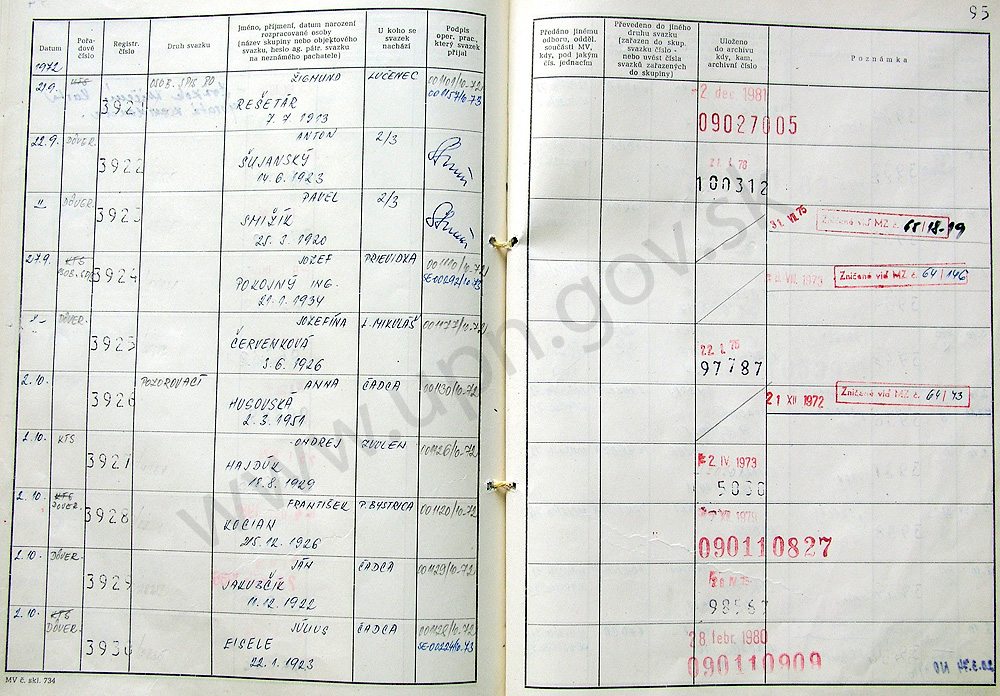 95
Datum
Pořadové číslo
Registr. číslo
Druh svazku
Jméno, příjmení, datum narození
rozpracované osoby
(název skupiny nebo objektového
svazku, heslo ag. pátr. svazku
na neznámého pachatele)
U koho se
svazek
nachází
Podpis
oper. prac.,
který svazek
přijal
Předáno jinému
odboru, odděl.
součásti MV,
kdy, pod jakým
čís. jednacím
Převedeno do jiného
druhu svazku
(zařazen do skup.
svazku číslo -
nebo uvést čísla
svazků zařazených
do skupiny)
Uloženo
do archivu
kdy, kam,
archivní číslo
Poznámka
1972
21.9. KTS 3921 ŽIGMUND LUČENEC
REŠETÁR
7. 7. 1913
2 dec 1981
09027005
22.9. DÔVER. 3922 ANTON 2/3
ŠUJANSKÝ
14. 6. 1923
100312
DÔVER. 3923 PAVEL 2/3
SMIŽÍK
25. 3. 1920
31. VII. 75
Zničené viď MZ č.
27.9. KTS 3924 JOZEF PRIEVIDZA
POKOJNÝ ING.
21. 1. 1934
VII. 1973 Zničené viď MZ č. 64/146
DÔVER. 3925 JOZEFÍNA L. MIKULÁŠ 001177/10-72
ČERVENKOVÁ
3. 6. 1926
22. I. 75
97787
2.10. 3926 POZOROVACÍ ANNA ČADCA 001130/10-72
HUGOVSKÁ
2. 3. 1951
21 XII 1972 Zničené viď MZ č. 64/43
2.10. KTS 3927 ONDREJ ZVOLEN 001126/10-72
HAJDÚK
18. 8. 1929
2. IV. 1973
5030
2.10. KTS DÔVER. 3928 FRANTIŠEK P. BYSTRICA 001120/10-72
KOCIAN
25. 12. 1926
090110827
2.10. DÔVER. 3929 JÁN ČADCA 001129/10-72
JAKUBČÍK
11. 12. 1922
98567
2.10. KTS DÔVER. 3930 JÚLIUS ČADCA
EISELE
22. 1. 1923
28. febr. 1980
090110909
MV č. skl. 734
www.upn.gov.sk